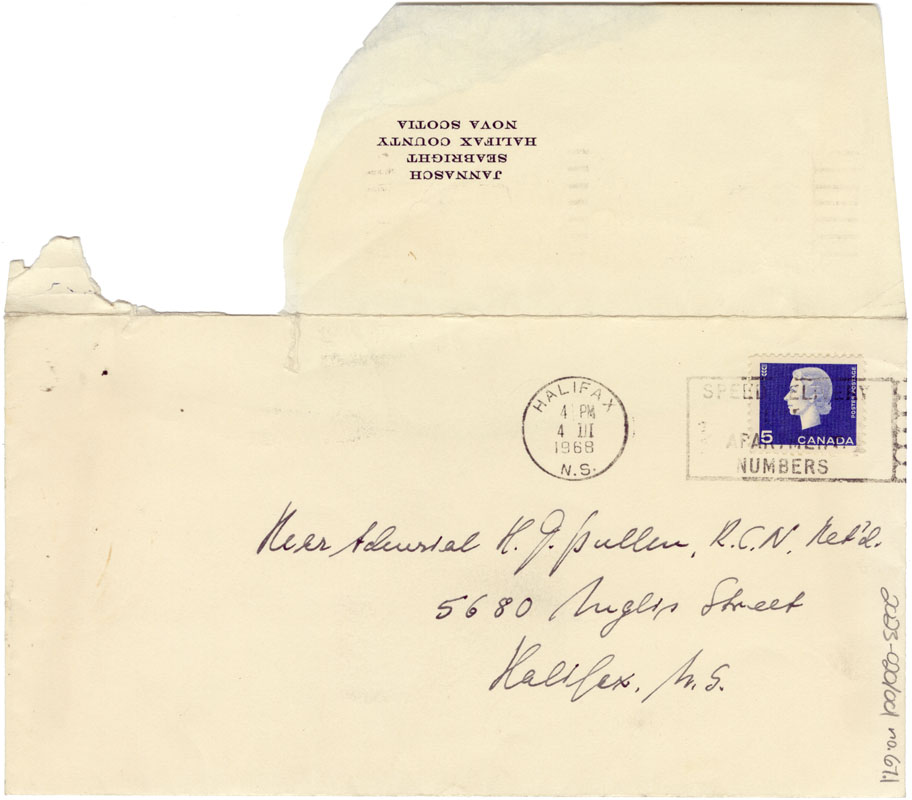 JANNASCH
SEABRIGHT
HALIFAX COUNTY
NOVA SCOTIA
HALIFAX
4 PM
4 III
1968
N.S.
NUMBERS
POSTES POSTAGE
5 CANADA
Rear Admiral H. J. Pullen, R.C.N. Ret'd.
5680 Inglis Street
Halifax, N.S.
no. 67.1